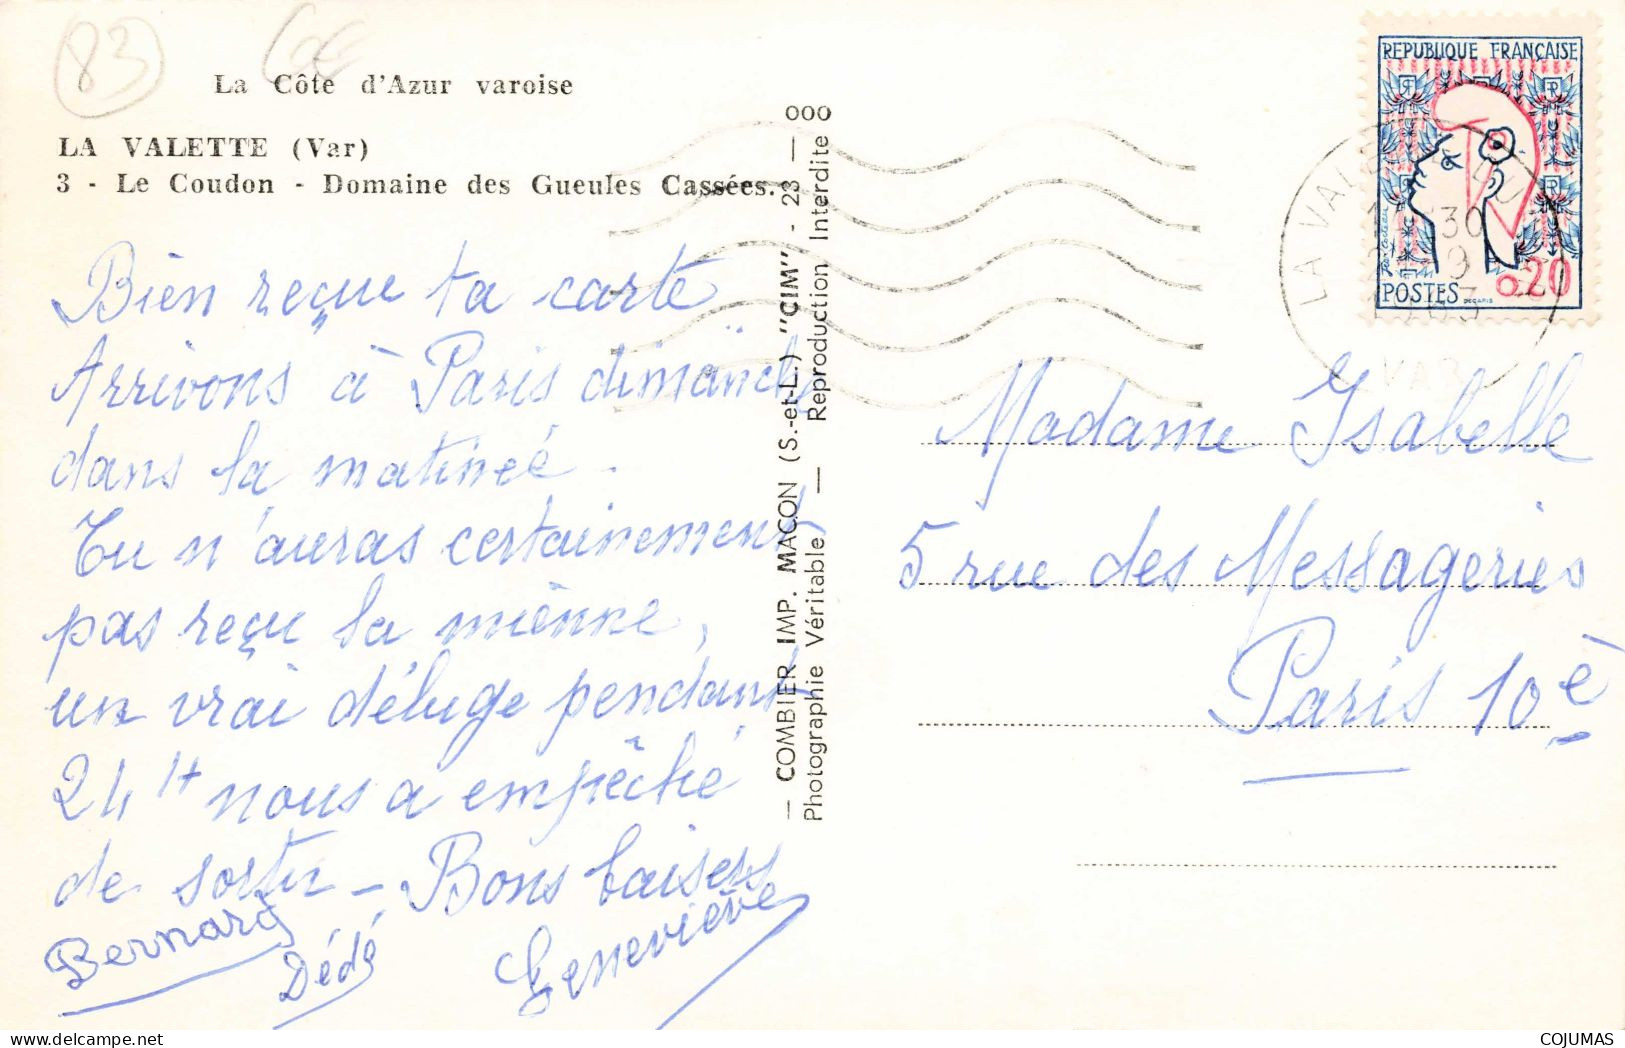 83
La Côte d'Azur varoise
LA VALETTE (Var)
3 - Le Coudon - Domaine des Gueules Cassées.
Bien reçue ta carte
Arrivons à Paris dimanche
dans la matinée.
Tu n'auras certainement
pas reçu la mienne,
un vrai déluge pendant
24 H nous a empêché
de sortir - Bons baisers
Bernard
Dédé
Geneviève
— COMBIER IMP. MACON (S.-et-L.) "CIM" - 23 — OOO
Photographie Véritable — Reproduction Interdite
REPUBLIQUE FRANÇAISE
POSTES 0,20
DECARIS
LA VALETTE DU
VAR
Madame Isabelle
5 rue des Messageries
Paris 10è
COJUMAS